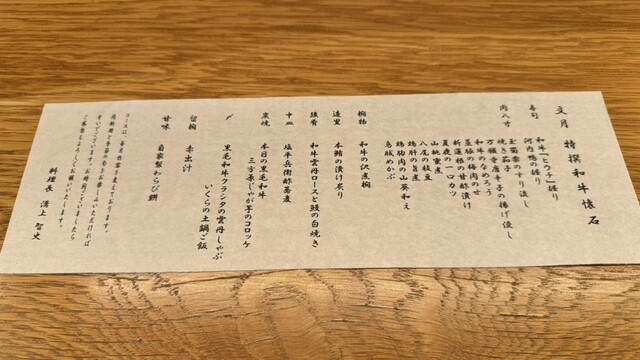 文月 特撰和牛懐石
寿司 和牛『ヒウチ』握り
河内鴨の握り
肉八寸 玉蜀黍のすり流し
焼き茄子
万願寺唐辛子の揚げ浸し
和牛のなめろう
茎豚の梅肉のせ
新蓮根の甘酢漬け
夏鹿の一口カツ
山桃蜜煮
八尾の枝豆
鶏肝の旨煮
鶏胸肉の山葵和え
鳥賊めかぶ
椀物 和牛の沢煮椀
造里 本鮪の漬け炙り
強肴 和牛雲丹ロースと鰻の白焼き
中皿 塩平兵衛酢蕎麦
炭焼 本日の黒毛和牛
三方茶じゃが芋のコロッケ
〆 黒毛和牛クラシタの雲丹しゃぶ
いくらの土鍋ご飯
留椀 赤出汁
甘味 自家製わらび餅
コースは、毎月献立を変えております。
料理長 溝上 智史